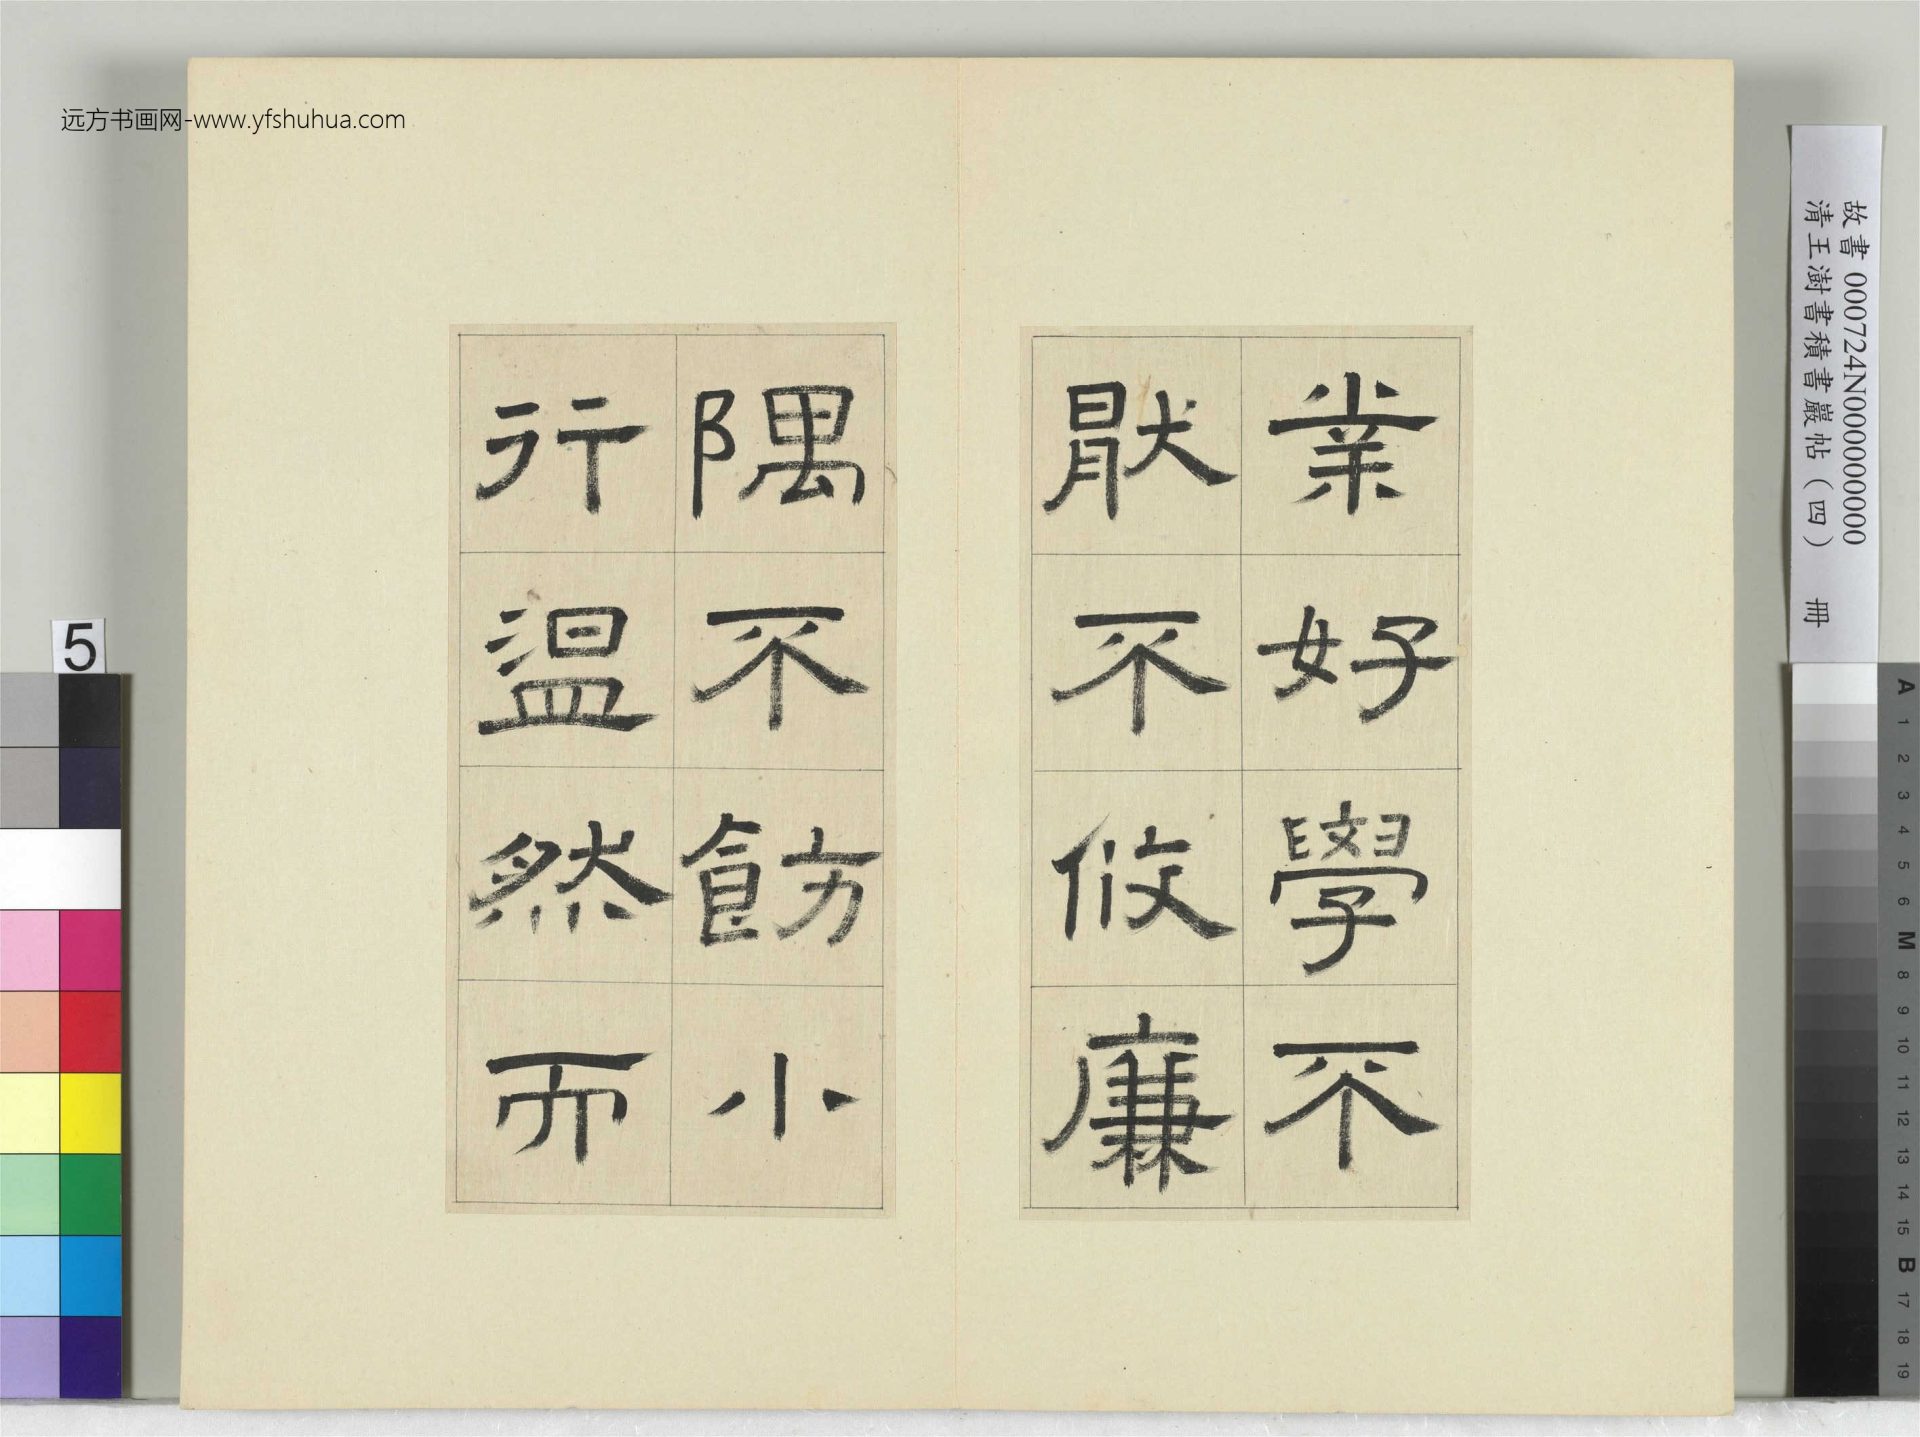 远方书画网-www.yfshuhua.com
業好學不
猒不攸廉
隅不飭小
行温然而
故書000724N000000000
清王澍書積書巖帖（四） 冊
5
A
1
2
3
4
5
6
M
8
9
10
11
12
13
14
15
B
17
18
19